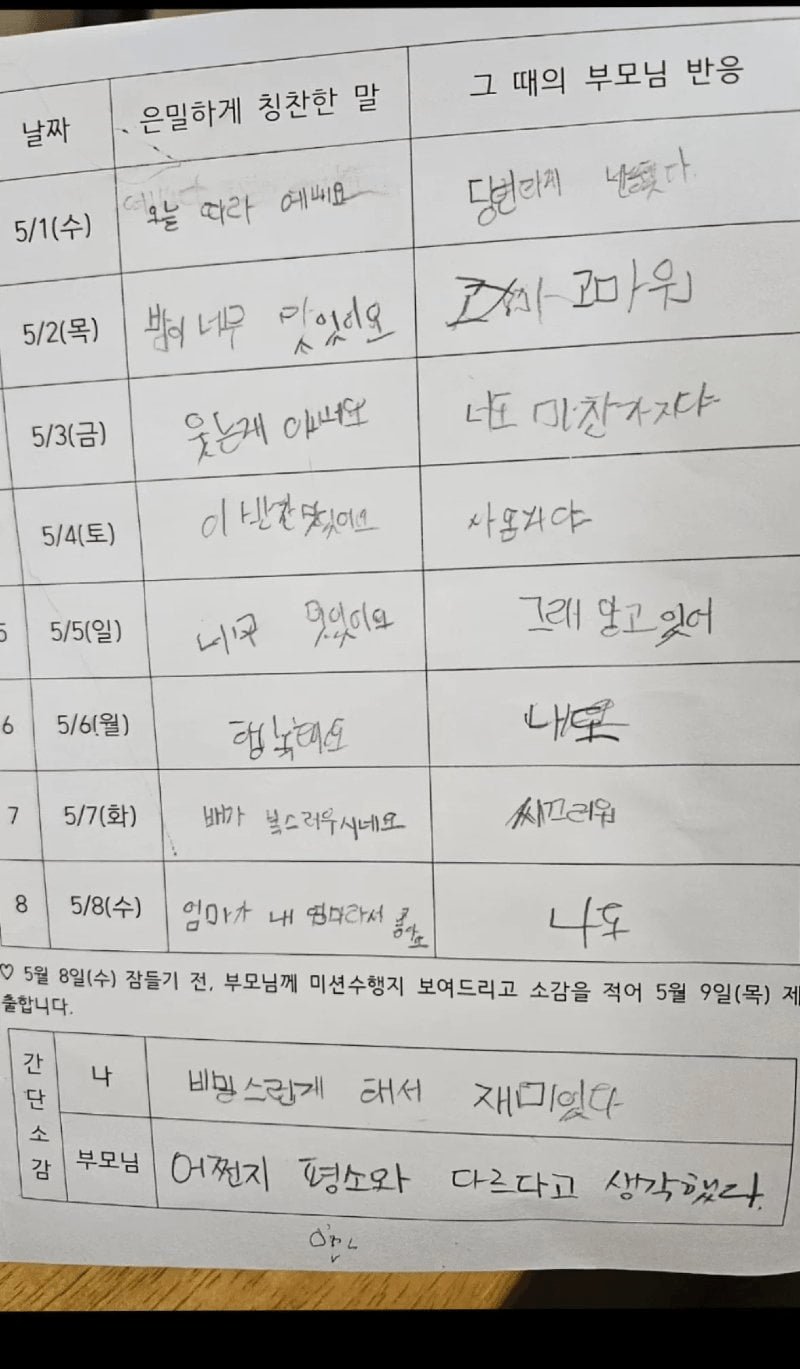 날짜 은밀하게 칭찬한 말 그 때의 부모님 반응
5/1(수) 오늘 따라 예뻐요 당번라게
5/2(목) 밥이 너무 맛있어요 고마워
5/3(금) 웃는게 너도 마찬가지야
5/4(토) 이 반찬 맛있어요
5 5/5(일) 너무 멋있어요 그래 알고 있어
6 5/6(월) 행복해요 내도
7 5/7(화) 배가 복스러우시네요 씨끄러워
8 5/8(수) 엄마가 내 엄마라서 좋아요 나도
♡ 5월 8일(수) 잠들기 전, 부모님께 미션수행지 보여드리고 소감을 적어 5월 9일(목) 제
출합니다.
간단소감
나 비밍스런게 태서 재미있다
부모님 어쩐지 평소와 다르다고 생각했다.